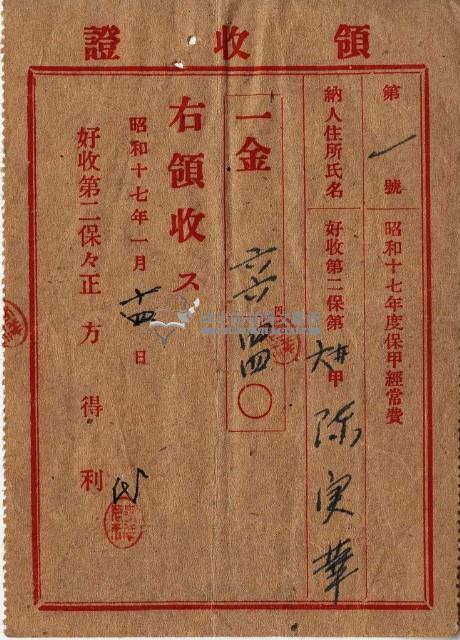 領收證
第 一 號 昭和十七年度保甲經常費
納人住所氏名 好收第二保第 甲 陳実華
一金 〇
右領收ス
昭和十七年一月 十四 日
好收第二保々正 方得利